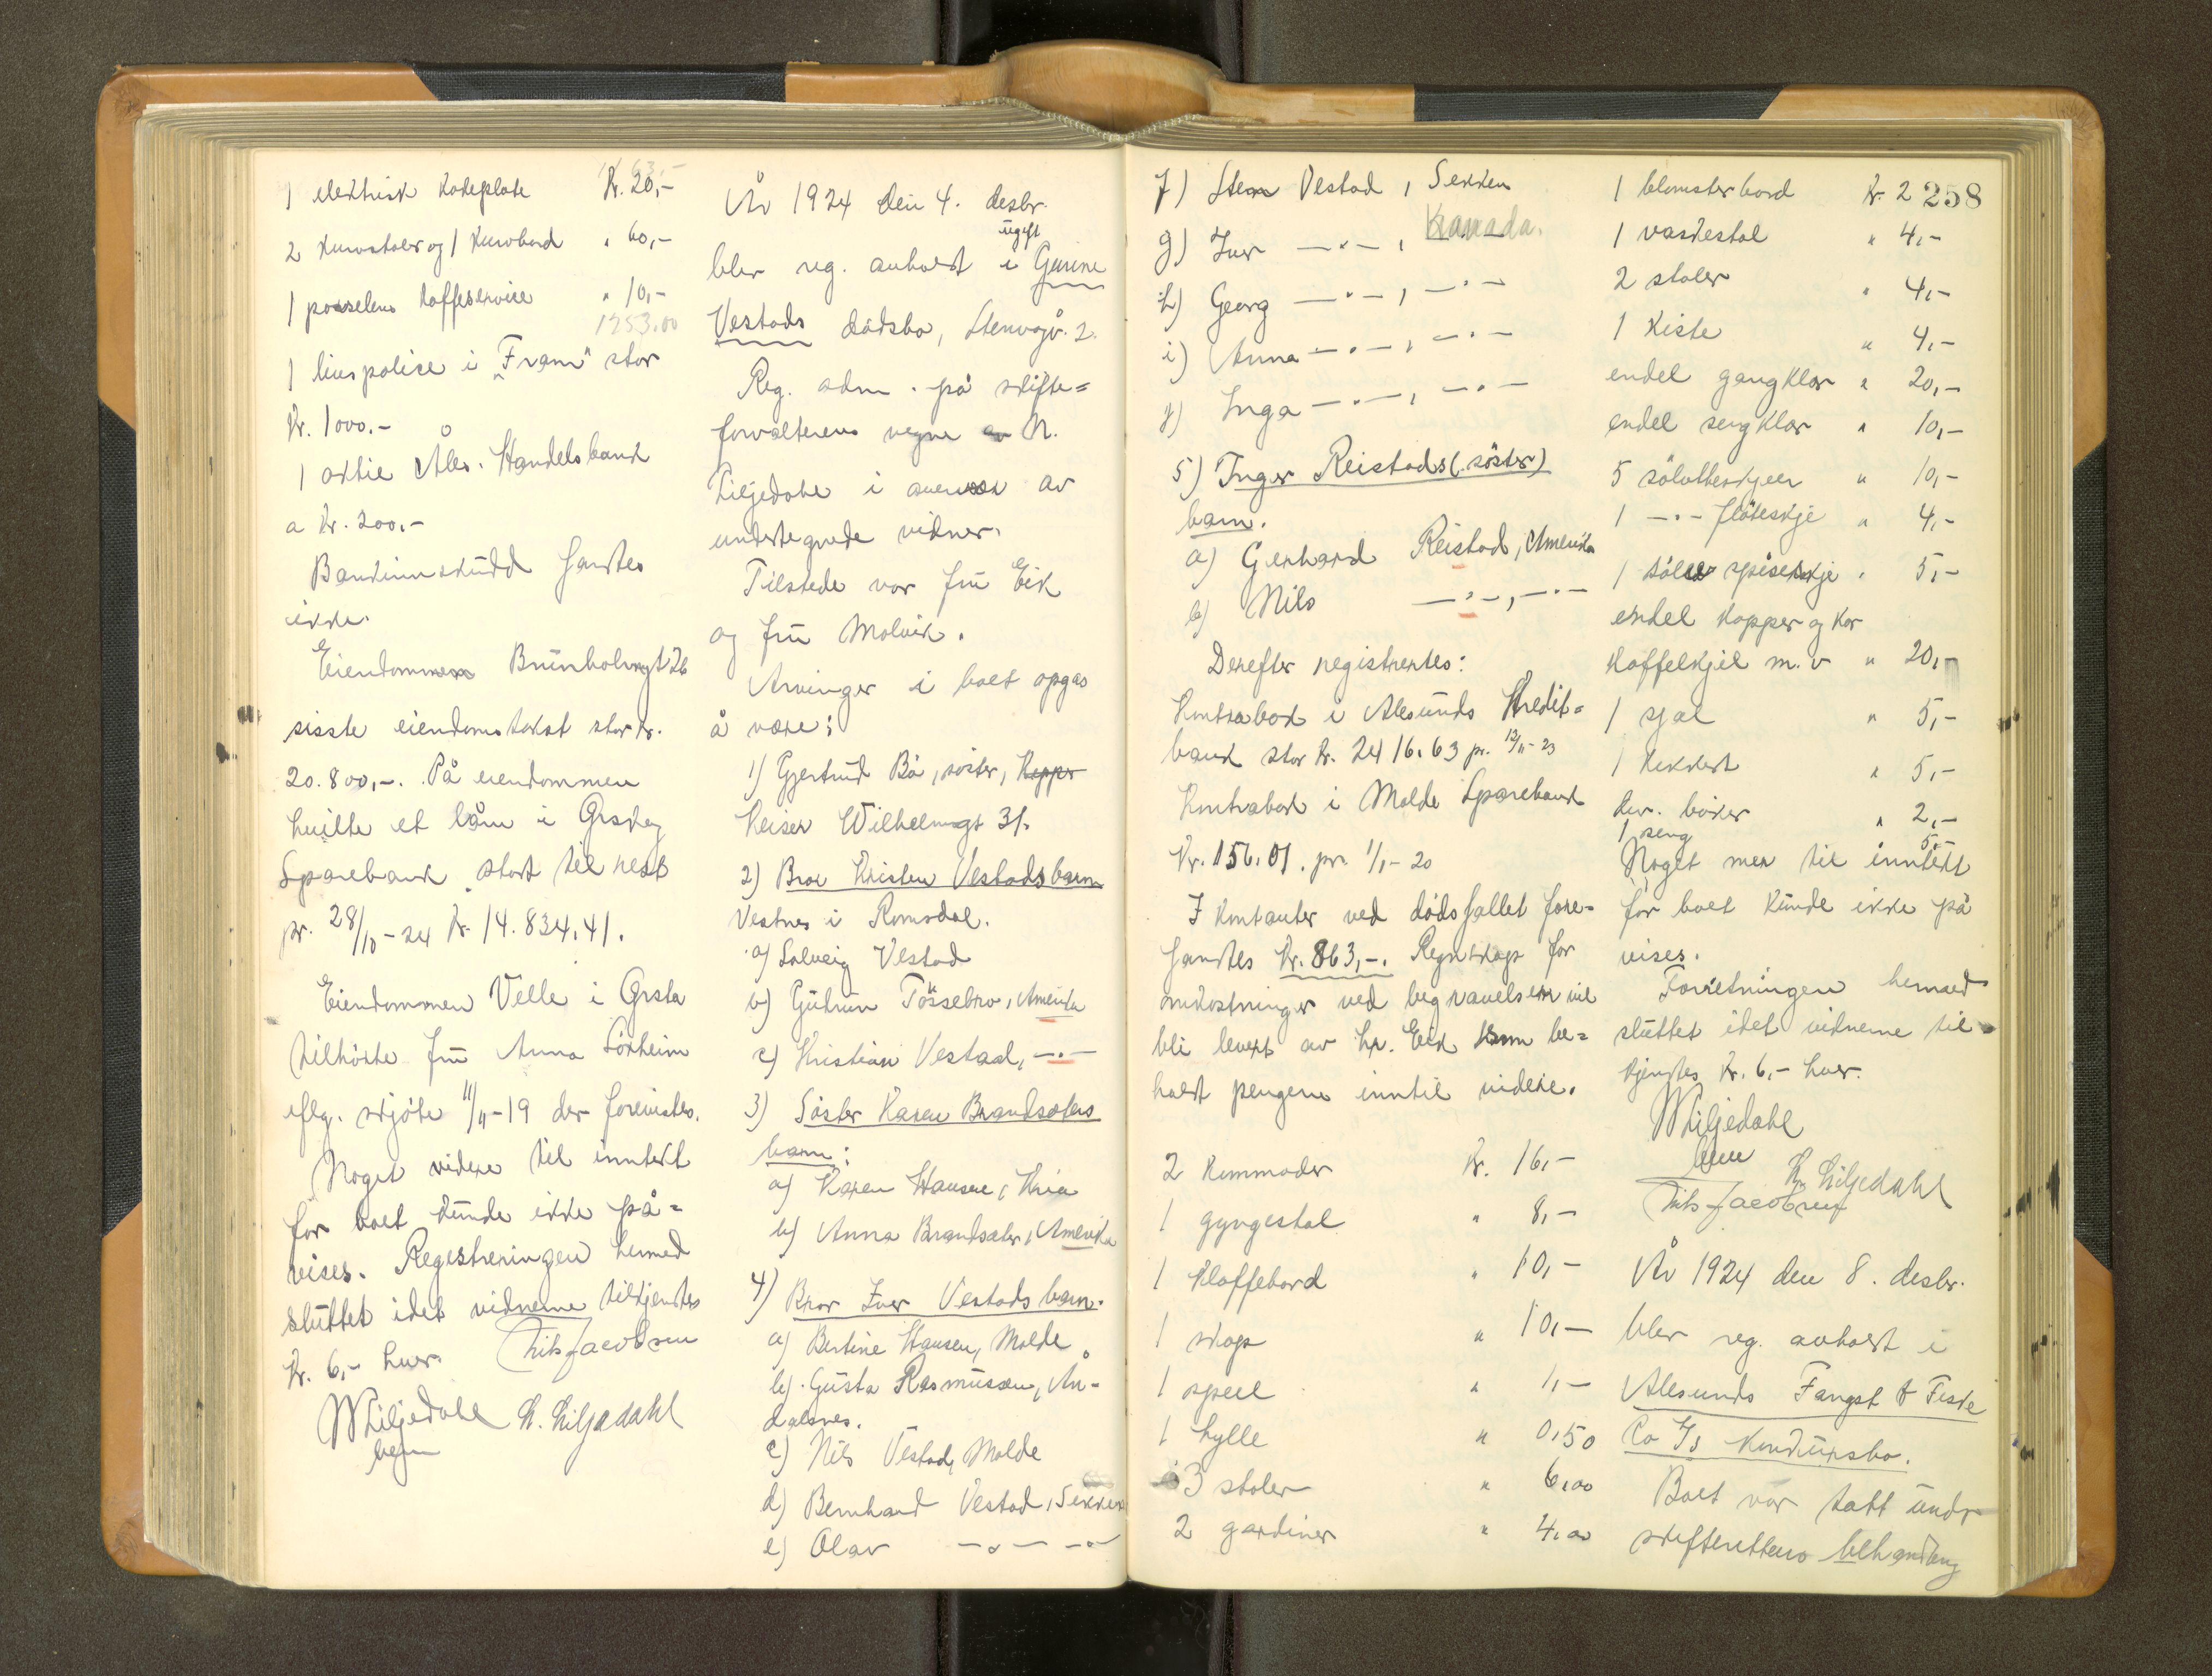 1 elektrisk kokeplate Kr. 20,-
2 kurvstoler og 1 kurvbord " 60,-
1 porselens kaffeservice " 10,-
1253.00
1 livspolise i "Fram" stor
Kr. 1000.-
1 aktie Åles. Handelsbank
a Kr. 200,-
Bankinnskudd fandtes
ikke.
Eiendommen Brunholmgt 26
sisste eiendomstakst stor kr.
20.800,-. På eiendommen
hvilte et lån i Ørskog
Sparebank stort til rest
pr. 28/10-24 Kr. 14.834,41.
Eiendommen Velle i Ørsta
tilhörte fru Anna Sörheim
iflg. skjöte 11/11-19 der forevistes.
Noget videre til inntekt
for boet kunde ikke på=
vises. Registreringen hermed
sluttet idet vidnerne tilkjentes
Kr. 6,- hver. Nils Jacobsen
W Liljedahl H. Liljedahl
bem
År 1924 den 4. desbr.
ugift
blev reg. avholdt i Gurine
Vestads dödsbo, Stenvågv. 2.
Reg. adm. på skifte=
forvalterens vegne av W.
Liljedahl i overvær av
undertegnede vidner.
Tilstede var fru Eik
og fru Malvik.
Arvinger i boet opgas
å være:
1) Gjertrud Bö, söster, Kepper
Keiser Wilhelmsgt 31.
2) Bror Kristen Vestads barn
Vestnes i Romsdal.
a) Solveig Vestad
b) Gudrun Tössebro, Amerika
c) Kristian Vestad, -"-
3) Söster Karen Brandsæters
barn:
a) Karen Hansen, Kria
b) Anna Brandsæter, Amerika
4) Bror Iver Vestads barn.
a) Bertine Hansen, Molde
b) Gusta Rasmussen, Ån-
dalsnes.
c) Nils Vestad, Molde
d) Bernhard Vestad, Sekken
e) Olav -"- -"-
f) Sten Vestad, Sekken
g) Iver -"-, Kanada.
h) Georg -"-, -"-
i) Anna -"-, -"-
j) Inga -"-, -"-
5) Inger Reistads (söster)
barn.
a) Gerhard Reistad, Amerika
b) Nils -"-, -"-
Derefter registrertes:
Kontrabok i Ålesunds Kredit=
bank stor Kr. 2416.63 pr. 12/11-23
Kontrabok i Molde Sparebank
Kr. 156.01. pr. 1/1-20
I kontanter ved dödsfallet fore=
fandtes Kr. 863,-. Regnskap for
omkostninger ved begravelsen vil
bli levert av hr. Eik som be=
holdt pengene inntil videre.
2 kommoder Kr. 16,-
1 gyngestol " 8,-
1 klaffebord " 10,-
1 skap " 10,-
1 speil " 1,-
1 hylle " 0,50
3 stoler " 6,00
2 gardiner " 4,00
1 blomsterbord Kr. 2 258
1 vaskestol " 4,-
2 stoler " 4,-
1 kiste " 4,-
endel gangklær " 20,-
endel sengklær " 10,-
5 sölvtheskjeer " 10,-
1 -"- flöteskje " 4,-
1 sölv spiseskje " 5,-
endel kopper og kar
kaffekjel m.v " 20,-
1 sjal " 5,-
1 kikkert " 5,-
div. böker " 2,-
1 seng 5,-
Noget mer til inntekt
for boet kunde ikke på
vises.
Forretningen hermed
sluttet idet vidnerne til
kjentes Kr. 6,- hver.
W Liljedahl
bem
H. Liljedahl
Nils Jacobsen
År 1924 den 8. desbr.
blev reg. avholdt i
Ålesunds Fangst & Fiske
Co A/s konkursbo.
Boet var tatt under
skifterettens behandling